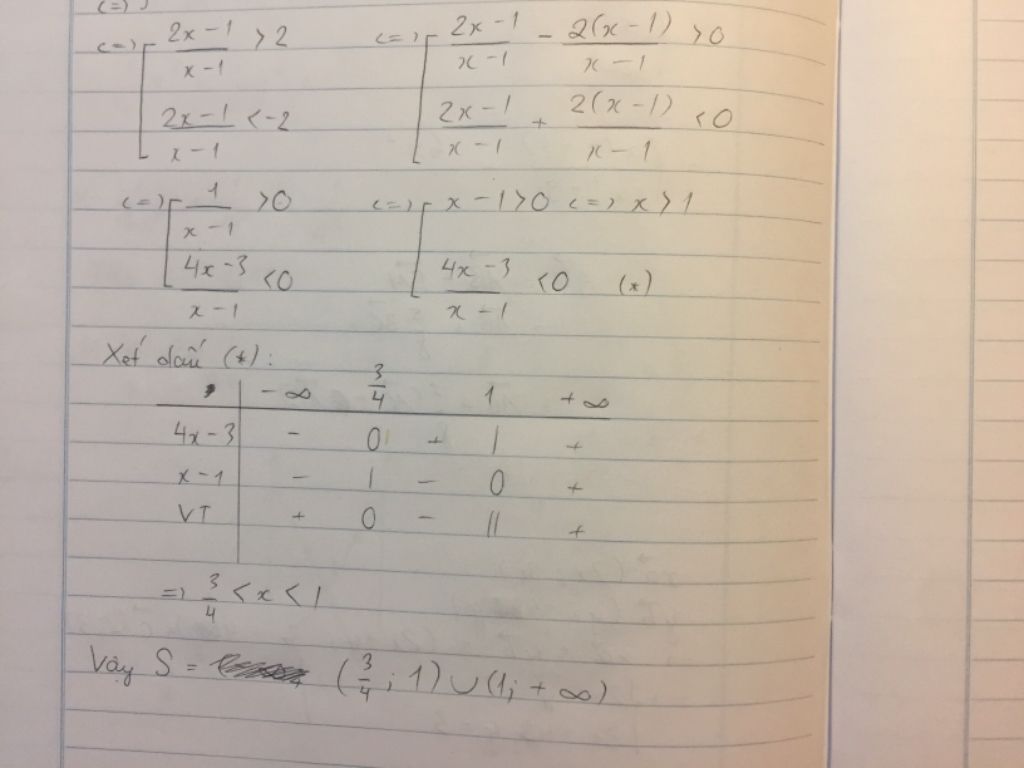 <=>
<=> [ (2x-1)/(x-1) > 2 <=> [ (2x-1)/(x-1) - 2(x-1)/(x-1) > 0
(2x-1)/(x-1) < -2 (2x-1)/(x-1) + 2(x-1)/(x-1) < 0
<=> [ 1/(x-1) > 0 <=> [ x-1 > 0 <=> x > 1
(4x-3)/(x-1) < 0 (4x-3)/(x-1) < 0 (*)
Xét dấu (*):
-∞ 3/4 1 +∞
4x-3 - 0 + | +
x-1 - | - 0 +
VT + 0 - || +
=> 3/4 < x < 1
Vậy S = (3/4; 1) ∪ (1; +∞)